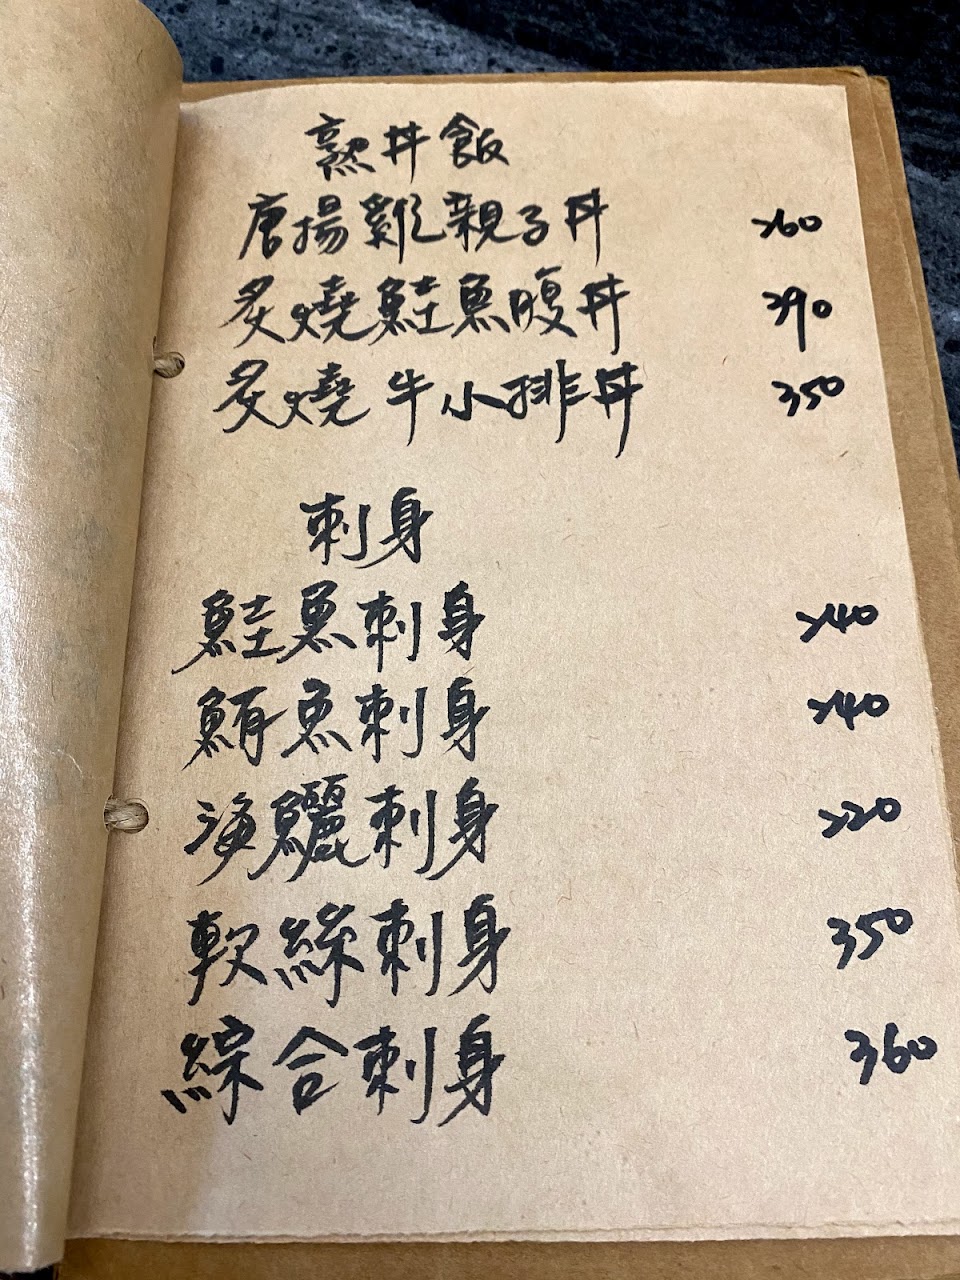 熟丼飯
唐揚雞親子丼 260
炙燒鮭魚腹丼 390
炙燒牛小排丼 350
刺身
鮭魚刺身 240
鮪魚刺身 240
海鱺刺身 220
軟絲刺身 350
綜合刺身 360